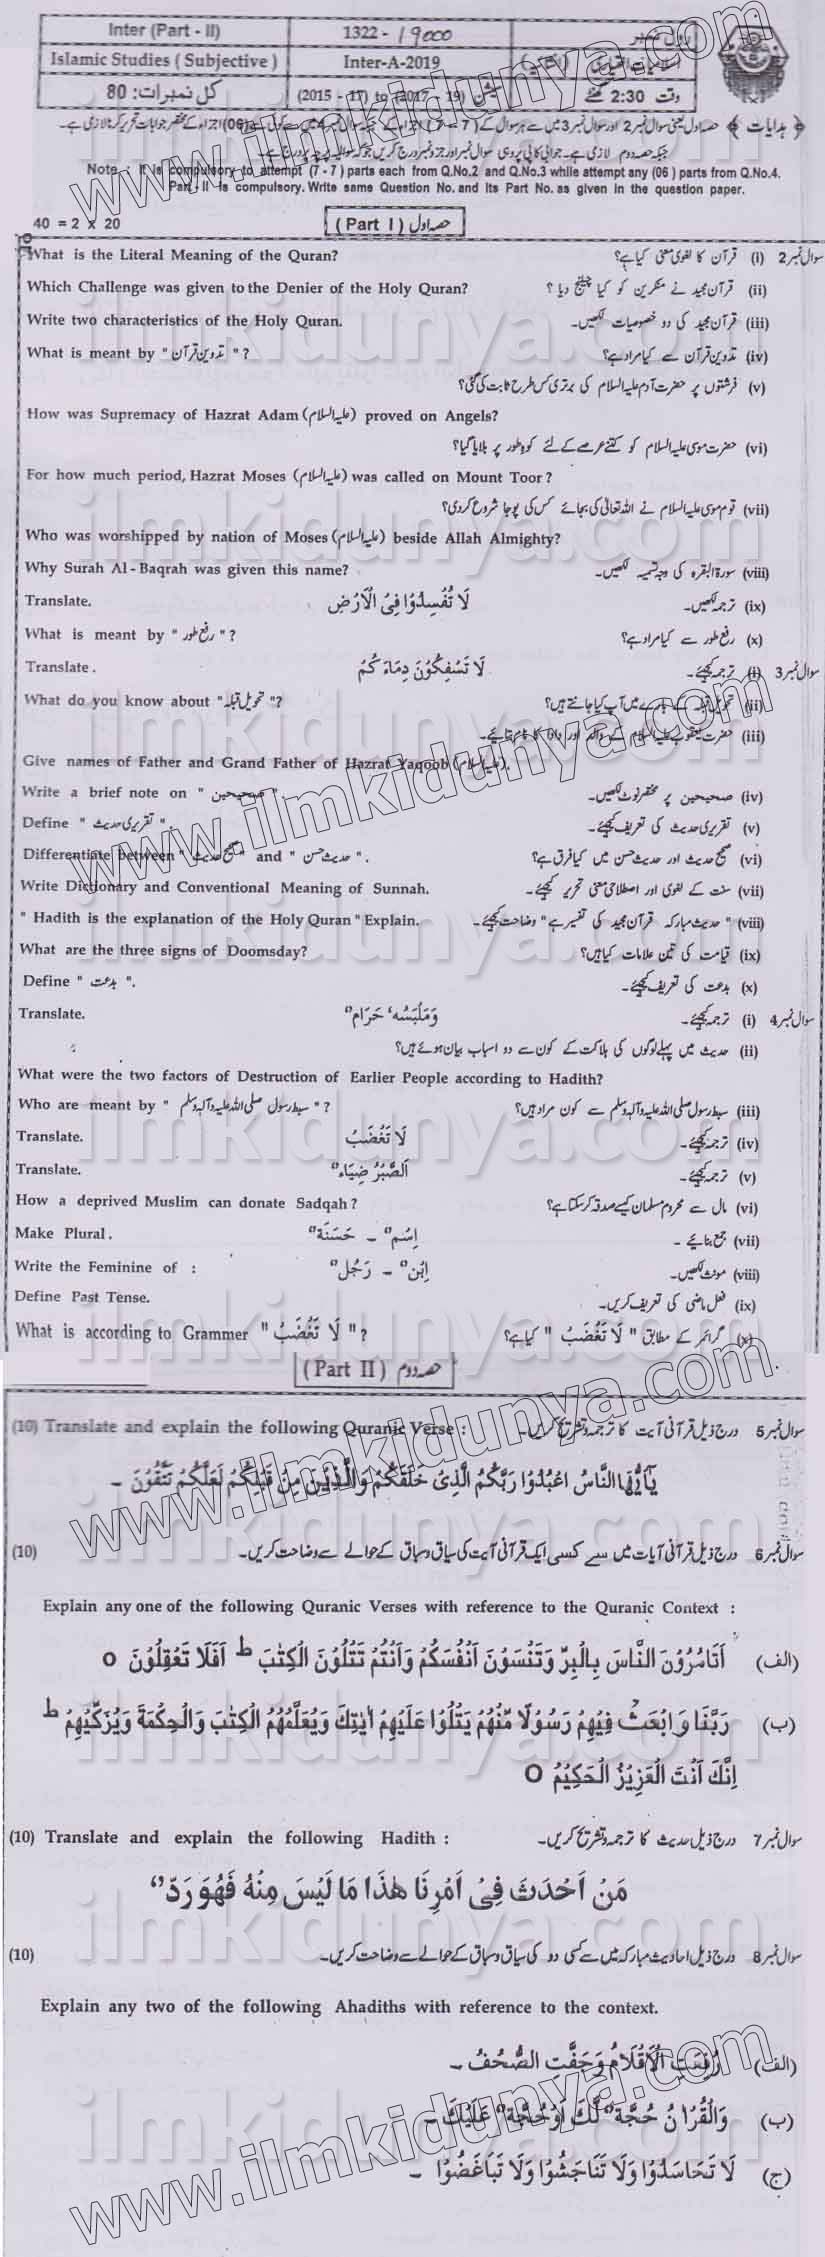 Inter (Part - II) 1322 - 19000 رول نمبر
Islamic Studies ( Subjective ) Inter-A-2019 اسلامیات اختیاری
کل نمبرات: 80 سیشن (2015 - 17) to (2017 - 19) وقت 2:30 گھنٹے
﴿ ہدایات ﴾ حصہ اول یعنی سوال نمبر 2 اور سوال نمبر 3 میں سے ہر سوال کے (7 - 7) اجزاء کے جبکہ سوال نمبر 4 میں سے کوئی سے (06) اجزاء کے مختصر جوابات تحریر کرنا لازمی ہے۔
جبکہ حصہ دوم لازمی ہے۔ جوابی کاپی پر وہی سوال نمبر اور جز نمبر درج کریں جو کہ سوالیہ پرچہ پر درج ہے۔
Note : It is compulsory to attempt (7 - 7) parts each from Q.No.2 and Q.No.3 while attempt any (06) parts from Q.No.4.
Part - II is compulsory. Write same Question No. and its Part No. as given in the question paper.
40 = 2 x 20 ( Part I ) حصہ اول
What is the Literal Meaning of the Quran? سوال نمبر 2 (i) قرآن کا لغوی معنی کیا ہے؟
Which Challenge was given to the Denier of the Holy Quran? (ii) قرآن مجید نے منکرین کو کیا چیلنج دیا ؟
Write two characteristics of the Holy Quran. (iii) قرآن مجید کی دو خصوصیات لکھیں۔
What is meant by " تدوین قرآن " ? (iv) تدوین قرآن سے کیا مراد ہے؟
(v) فرشتوں پر حضرت آدم علیہ السلام کی برتری کس طرح ثابت کی گئی؟
How was Supremacy of Hazrat Adam (علیہ السلام) proved on Angels?
(vi) حضرت موسی علیہ السلام کو کتنے عرصے کے لئے کوہ طور پر بلایا گیا؟
For how much period, Hazrat Moses (علیہ السلام) was called on Mount Toor ?
(vii) قوم موسی علیہ السلام نے اللہ تعالی کی بجائے کس کی پوجا شروع کر دی؟
Who was worshipped by nation of Moses (علیہ السلام) beside Allah Almighty?
Why Surah Al - Baqrah was given this name? (viii) سورۃ البقرہ کی وجہ تسمیہ لکھیں۔
Translate. لَا تُفْسِدُوا فِی الْاَرْضِ (ix) ترجمہ لکھیں۔
What is meant by " رفع طور " ? (x) رفع طور سے کیا مراد ہے؟
Translate . لَا تَسْفِكُوْنَ دِمَاءَ كُمْ سوال نمبر 3 (i) ترجمہ کیجئے۔
What do you know about "تحویل قبلہ"? (ii) تحویل قبلہ کے بارے میں آپ کیا جانتے ہیں؟
(iii) حضرت یعقوب علیہ السلام کے والد اور دادا کا نام بتائیے۔
Give names of Father and Grand Father of Hazrat Yaqoob (علیہ السلام).
Write a brief note on " صحیحین ". (iv) صحیحین پر مختصر نوٹ لکھیں۔
Define " تقریری حدیث ". (v) تقریری حدیث کی تعریف کیجئے۔
Differentiate between " صحیح حدیث " and " حدیث حسن ". (vi) صحیح حدیث اور حدیث حسن میں کیا فرق ہے؟
Write Dictionary and Conventional Meaning of Sunnah. (vii) سنت کے لغوی اور اصطلاحی معنی تحریر کیجئے۔
" Hadith is the explanation of the Holy Quran " Explain. (viii) " حدیث مبارکہ قرآن مجید کی تفسیر ہے " وضاحت کیجئے۔
What are the three signs of Doomsday? (ix) قیامت کی تین علامات کیا ہیں؟
Define " بدعت ". (x) بدعت کی تعریف کیجئے۔
Translate. وَمَلْبَسُهٗ حَرَامٌ سوال نمبر 4 (i) ترجمہ کیجئے۔
(ii) حدیث میں پہلے لوگوں کی ہلاکت کے کون سے دو اسباب بیان ہوئے ہیں؟
What were the two factors of Destruction of Earlier People according to Hadith?
Who are meant by " سبط رسول صلی اللہ علیہ وآلہ وسلم " ? (iii) سبط رسول صلی اللہ علیہ وآلہ وسلم سے کون مراد ہیں؟
Translate. لَا تَغْضَبْ (iv) ترجمہ کیجئے۔
Translate. اَلصَّبْرُ ضِیَاءٌ (v) ترجمہ کیجئے۔
How a deprived Muslim can donate Sadqah ? (vi) مال سے محروم مسلمان کیسے صدقہ کر سکتا ہے؟
Make Plural . اِسْمٌ - حَسَنَةٌ (vii) جمع بنائیے -
Write the Feminine of : اِبْنٌ - رَجُلٌ (viii) مونث لکھیں۔
Define Past Tense. (ix) فعل ماضی کی تعریف کریں۔
What is according to Grammer " لَا تَغْضَبْ " ? (x) گرائمر کے مطابق " لَا تَغْضَبْ " کیا ہے؟
( Part II ) حصہ دوم
(10) Translate and explain the following Quranic Verse : سوال نمبر 5 درج ذیل قرآنی آیت کا ترجمہ و تشریح کریں۔
یٰٓاَیُّهَا النَّاسُ اعْبُدُوْا رَبَّكُمُ الَّذِیْ خَلَقَكُمْ وَالَّذِیْنَ مِنْ قَبْلِكُمْ لَعَلَّكُمْ تَتَّقُوْنَ -
(10) سوال نمبر 6 درج ذیل قرآنی آیات میں سے کسی ایک قرآنی آیت کی سیاق و سباق کے حوالے سے وضاحت کریں۔
Explain any one of the following Quranic Verses with reference to the Quranic Context :
(الف) اَتَاْمُرُوْنَ النَّاسَ بِالْبِرِّ وَتَنْسَوْنَ اَنْفُسَكُمْ وَاَنْتُمْ تَتْلُوْنَ الْكِتٰبَ ط اَفَلَا تَعْقِلُوْنَ O
(ب) رَبَّنَا وَ ابْعَثْ فِیْهِمْ رَسُوْلًا مِّنْهُمْ یَتْلُوْا عَلَیْهِمْ اٰیٰتِكَ وَیُعَلِّمُهُمُ الْكِتٰبَ وَالْحِكْمَةَ وَیُزَكِّیْهِمْ ط
اِنَّكَ اَنْتَ الْعَزِیْزُ الْحَكِیْمُ O
(10) Translate and explain the following Hadith : سوال نمبر 7 درج ذیل حدیث کا ترجمہ و تشریح کریں۔
مَنْ اَحْدَثَ فِیْ اَمْرِنَا هٰذَا مَا لَیْسَ مِنْهُ فَهُوَ رَدٌّ
(10) سوال نمبر 8 درج ذیل احادیث مبارکہ میں سے کسی دو کی سیاق و سباق کے حوالے سے وضاحت کریں۔
Explain any two of the following Ahadiths with reference to the context.
(الف) رُفِعَتِ الْاَقْلَامُ وَجَفَّتِ الصُّحُفُ -
(ب) وَالْقُرْاٰنُ حُجَّةٌ لَّكَ اَوْحُجَّةٌ عَلَیْكَ -
(ج) لَا تَحَاسَدُوْا وَلَا تَنَاجَشُوْا وَلَا تَبَاغَضُوْا -
www.ilmkidunya.com
ilmkidunya.com